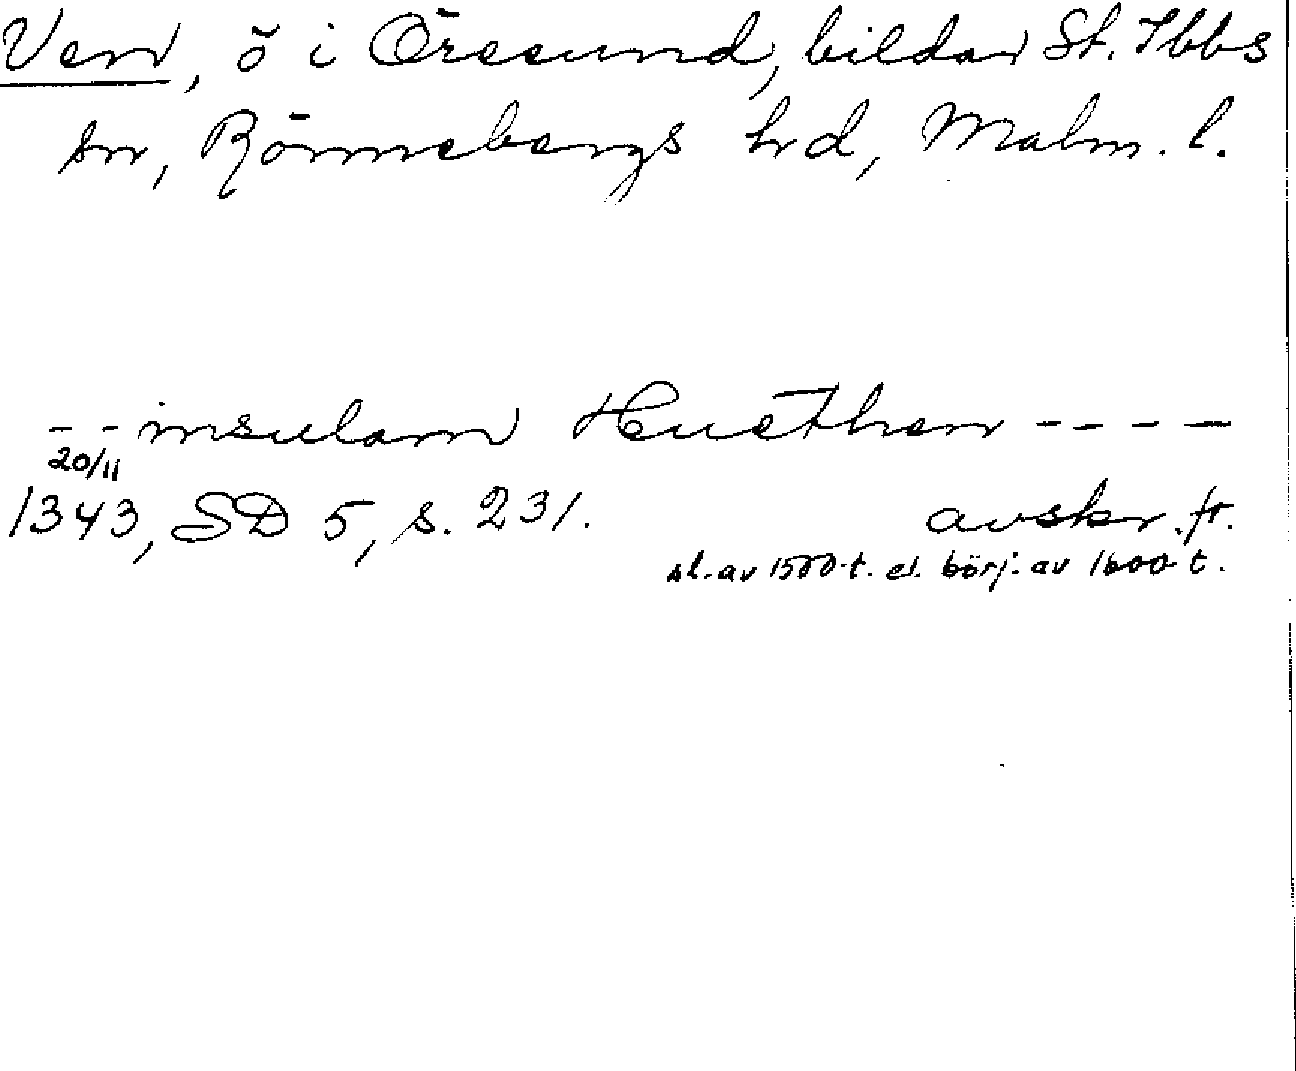 Ven, ö i Öresund, bildar St. Ibbs
sn, Rönnebergs hrd, Malm. l.
- - insulam Huethen - - - -
20/11
1343, SD 5, s. 231. avskr. fr.
sl. av 1500-t. el. börj. av 1600-t.